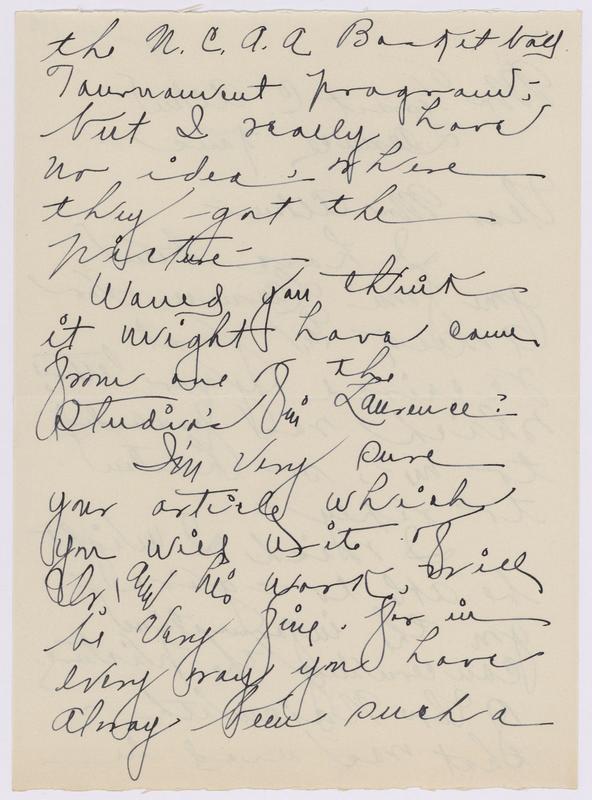 the N.C.A.A Basket ball
Tournament program;
but I really have
no idea, where
they got the
picture—
Would you think
it might have come
from one of the
Studio's in Laurence?
I'm very sure
your article which
you will write of
Dr, and his work, will
be very fine. for in
every way you have
alway been such a